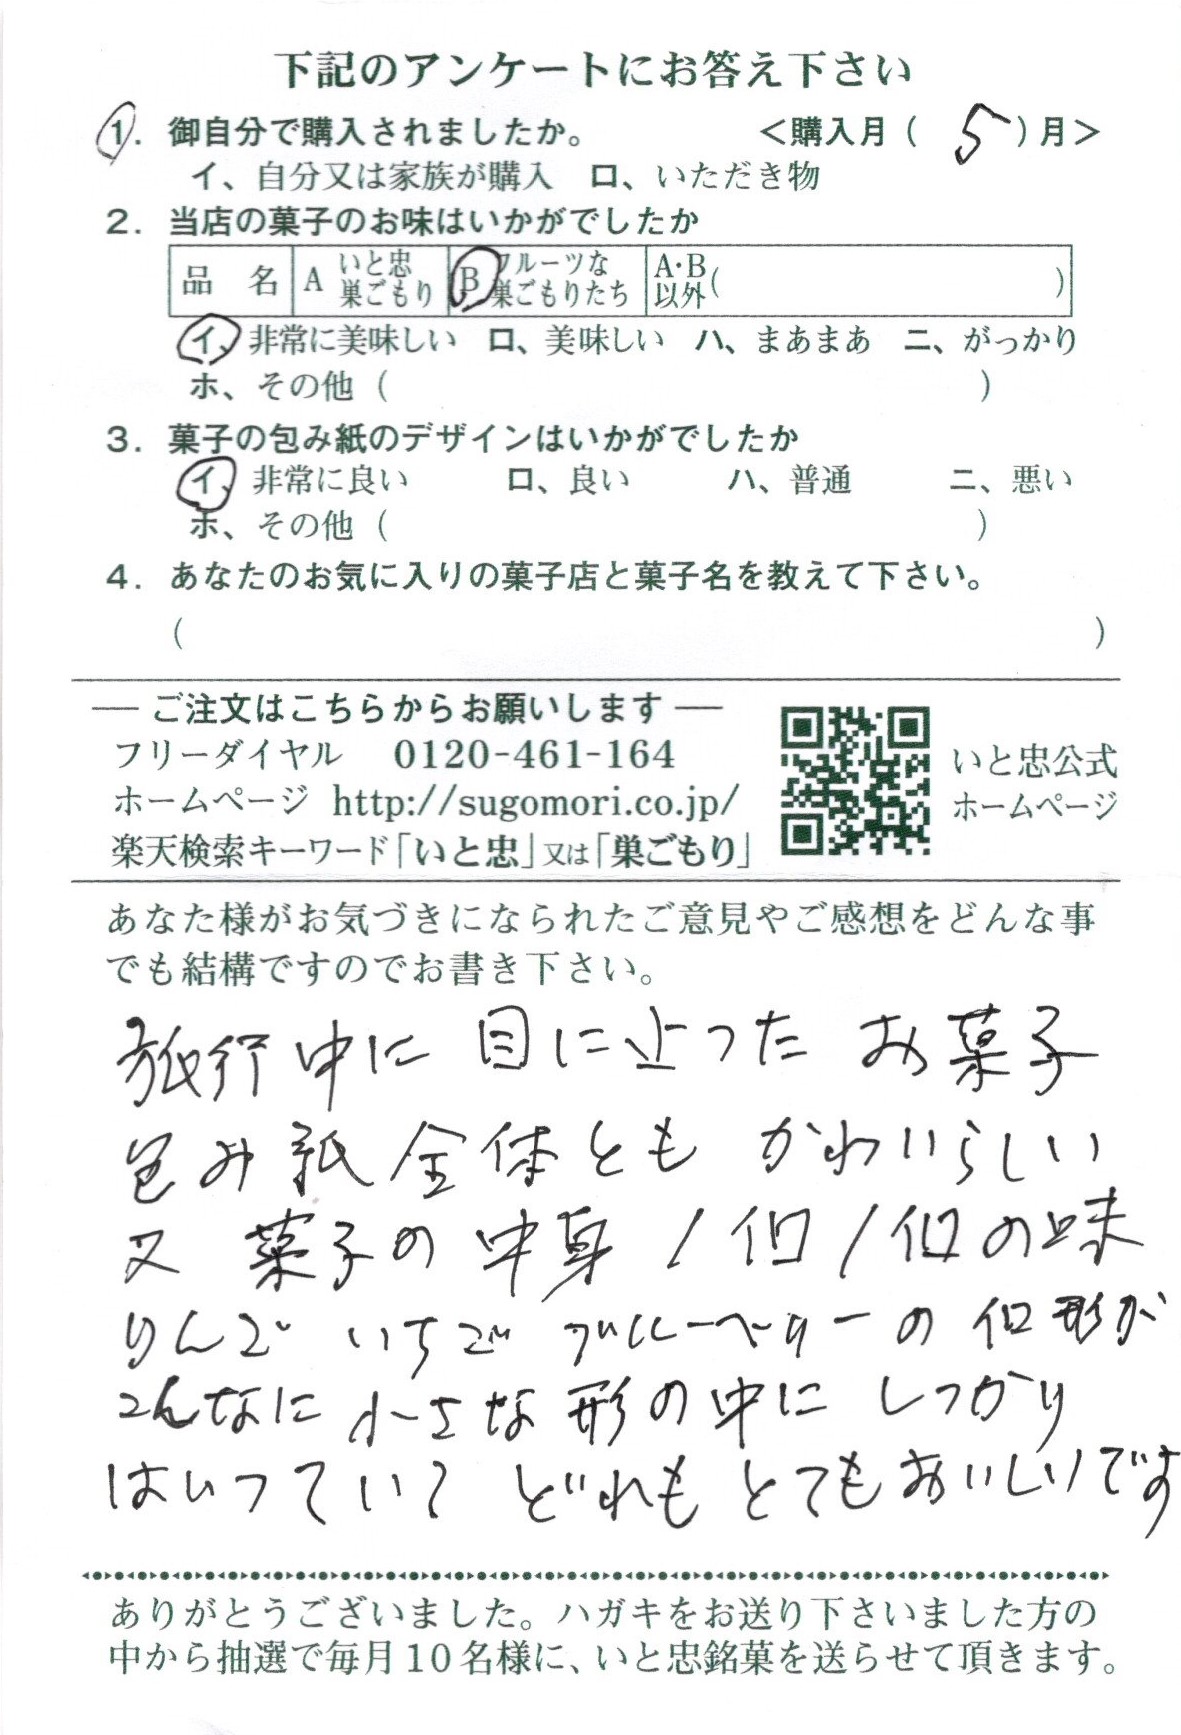 下記のアンケートにお答え下さい
1. 御自分で購入されましたか。 <購入月 ( 5 ) 月>
イ、自分又は家族が購入 ロ、いただき物
2. 当店の菓子のお味はいかがでしたか
品 名 A いと忠巣ごもり B フルーツな巣ごもりたち A・B以外( )
イ、非常に美味しい ロ、美味しい ハ、まあまあ ニ、がっかり
ホ、その他 ( )
3. 菓子の包み紙のデザインはいかがでしたか
イ、非常に良い ロ、良い ハ、普通 ニ、悪い
ホ、その他 ( )
4. あなたのお気に入りの菓子店と菓子名を教えて下さい。
( )
— ご注文はこちらからお願いします —
フリーダイヤル 0120-461-164
ホームページ http://sugomori.co.jp/
楽天検索キーワード「いと忠」又は「巣ごもり」
いと忠公式
ホームページ
あなた様がお気づきになられたご意見やご感想をどんな事
でも結構ですのでお書き下さい。
旅行中に 目に止った お菓子
包み紙全体とも かわいらしい
又 菓子の中身 1個1個の味
りんご いちご ブルーベリーの 個形が
こんなに 小さな 形の中に しっかり
はいってい� どれも とてもおいしいです
ありがとうございました。ハガキをお送り下さいました方の
中から抽選で毎月10名様に、いと忠銘菓を送らせて頂きます。